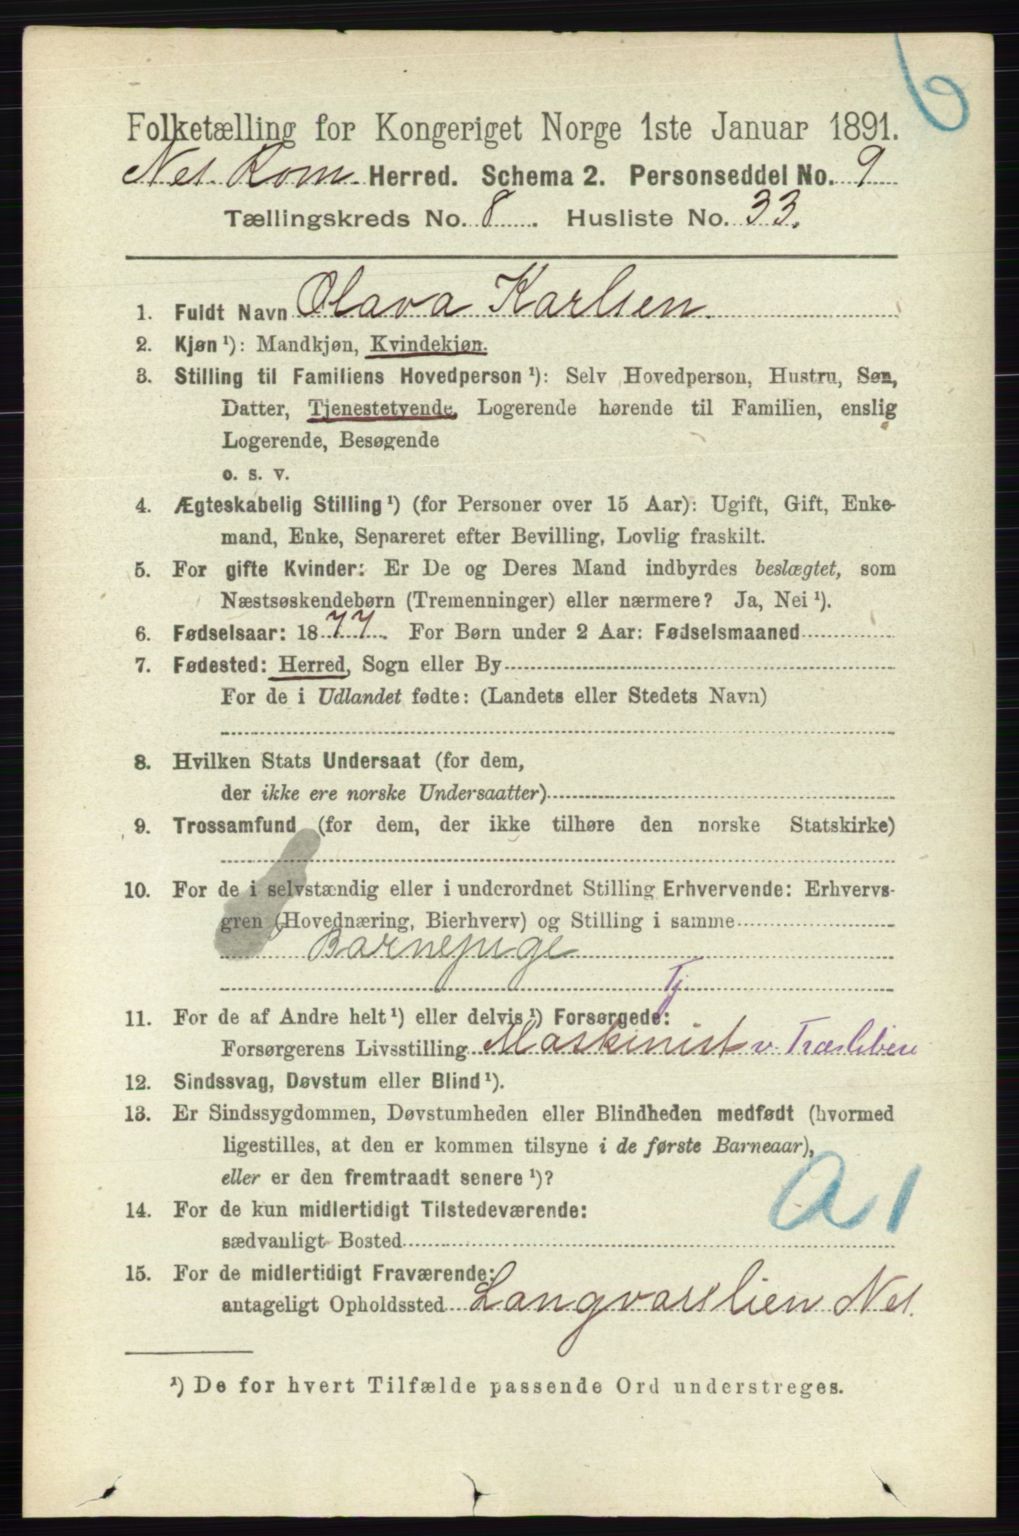 6
Folketælling for Kongeriget Norge 1ste Januar 1891.
Nes Rom. Herred. Schema 2. Personseddel No. 9
Tællingskreds No. 8. Husliste No. 33.
1. Fuldt Navn Olava Karlsen.
2. Kjøn ¹): Mandkjøn, Kvindekjøn.
3. Stilling til Familiens Hovedperson ¹): Selv Hovedperson, Hustru, Søn,
Datter, Tjenestetyende, Logerende hørende til Familien, enslig
Logerende, Besøgende
o. s. v.
4. Ægteskabelig Stilling ¹) (for Personer over 15 Aar): Ugift, Gift, Enke-
mand, Enke, Separeret efter Bevilling, Lovlig fraskilt.
5. For gifte Kvinder: Er De og Deres Mand indbyrdes beslægtet, som
Næstsøskendebørn (Tremenninger) eller nærmere? Ja, Nei ¹).
6. Fødselsaar: 1877. For Børn under 2 Aar: Fødselsmaaned
7. Fødested: Herred, Sogn eller By
For de i Udlandet fødte: (Landets eller Stedets Navn)
8. Hvilken Stats Undersaat (for dem,
der ikke ere norske Undersaatter)
9. Trossamfund (for dem, der ikke tilhøre den norske Statskirke)
10. For de i selvstændig eller i underordnet Stilling Erhvervende: Erhvervs-
gren (Hovednæring, Bierhverv) og Stilling i samme
Barnepige
Tj.
11. For de af Andre helt ¹) eller delvis ¹) Forsørgede:
Forsørgerens Livsstilling Maskinist v. Træsliberi
12. Sindssvag, Døvstum eller Blind ¹).
13. Er Sindssygdommen, Døvstumheden eller Blindheden medfødt (hvormed
ligestilles, at den er kommen tilsyne i de første Barneaar),
eller er den fremtraadt senere ¹)?
a 1
14. For de kun midlertidigt Tilstedeværende:
sædvanligt Bosted
15. For de midlertidigt Fraværende:
antageligt Opholdssted Langvarslien Nes.
¹) De for hvert Tilfælde passende Ord understreges.